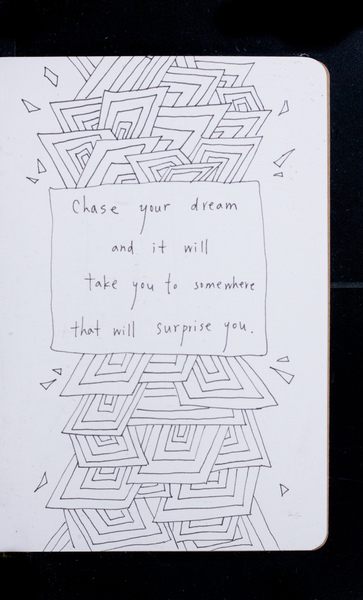 Chase your dream
and it will
take you to somewhere
that will surprise you.